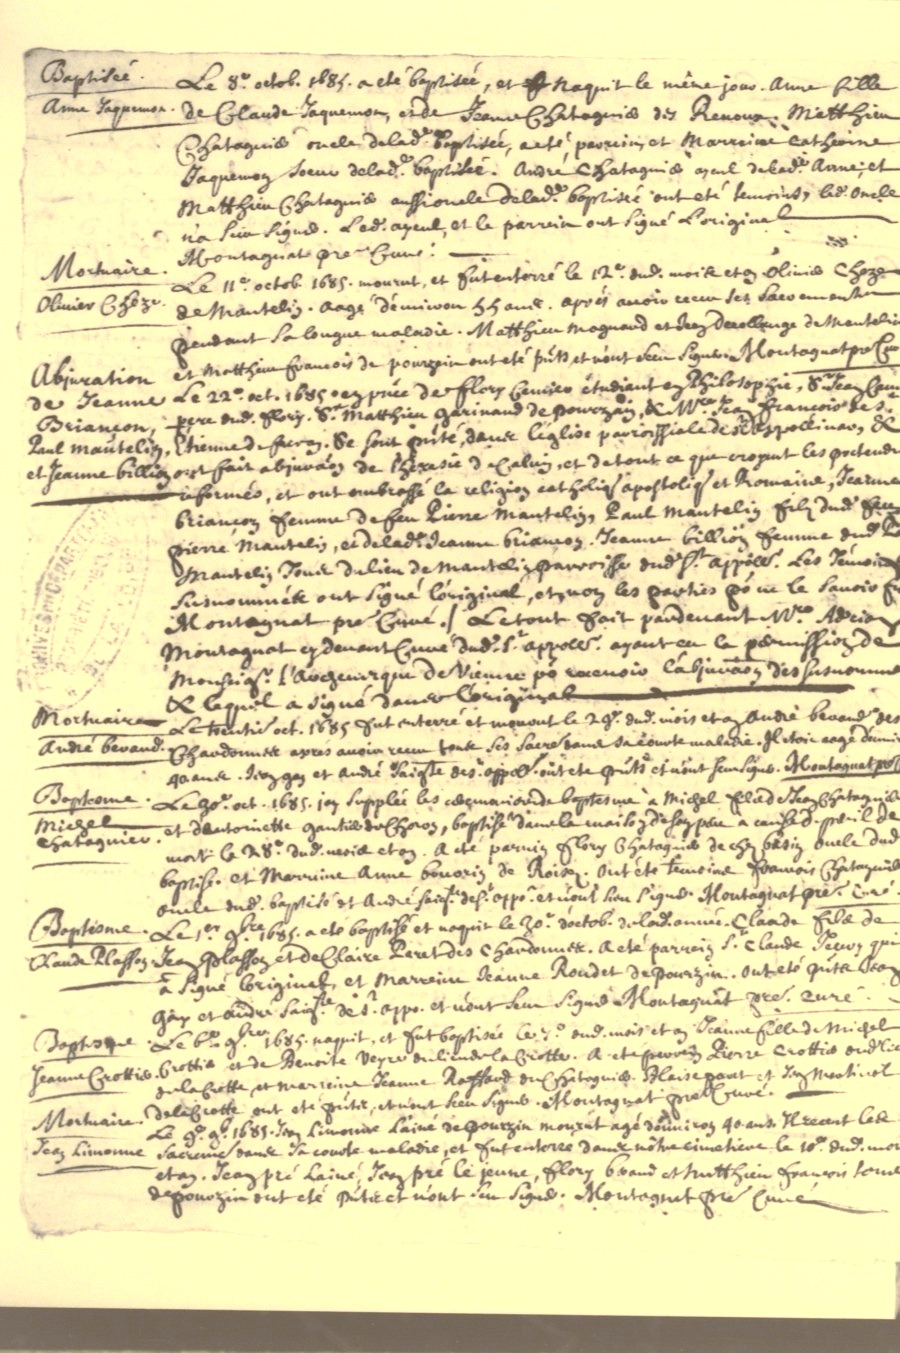 Baptiseé.
Anne Jaquemon.
Le 8e. octob. 1685. a eté baptiseé, et naquit le même jour. Anne fille
de Claude Jaquemon, et de Jeanne Chatagnié des Renoux. Matthieu
Chatagnié oncle delad. baptiseé, a eté parrein, et Marreine Catherine
Jaquemon soeur delad. baptiseé. André Chatagnié ayeul delad. Anne, et
Matthieu Chatagnié aussi oncle delad. baptiseé ont eté temoins, led. oncle
n'a sceu signer. Led. ayeul, et le parrein ont signé l'original
Montagnat pre Curé.
Mortuaire.
Olivier Cheze.
Le 11e. octob. 1685. mourut, et fut enterré le 12e. dud. mois et an Olivier Cheze
de Mantelin. aagé d'environ 55 ans. aprés avoir receu ses sacrements
pendant sa longue maladie. Matthieu magnand et de Mantelin
et Matthieu francois de pourzin ont eté et n'ont sceu signer. Montagnat pre Curé
Abjuration
de Jeanne
Briancon,
Paul mantelin,
et Jeanne billion
Le 22e. oct. 1685 en de flory étudiant en Philosophie, Sr. Jean
pere dud. flory. Sr. Matthieu garinaud de pourzain, & Mre. Jean francois des
Etienne de Se sont dans l'église parroissiale de St. appollinar, &
ont fait abjuraon de l'heresie de Calvin, et de tout ce que croyent les pretendu
reformés, et ont embrassé la religion catholiq apostoliq et Romaine, Jeanne
briancon femme de feu Pierre Mantelin, Paul Mantelin fils dud. feu
pierre Mantelin, et delad. Jeanne briancon. Jeanne billion femme dud. P
Mantelin Tous du lieu de Mantelin parroisse dud. St. appoll. Les Témoins
susnommés ont signé l'original, et non les parties po ne le sçavoir f
Montagnat pre Curé./ Le tout fait pardevant Mre. Adrian
Montagnat cy devant Curé dud. St. appolr. ayant eu la permission de
Monseigr. l'Archevesque de Vienne po recevoir l'abjuraon des susnomme
& lequel a signé dans l'original
Mortuaire
André bevand.
Le trentie oct. 1685 fut enterré et mourut le 29e. dud. mois et an André bevand des
Chardonnets apres avoir receu touts ses sacremts dans sa courte maladie. Il etoit aagé d'environ
40 ans. Jean gay et André de St. appoll. ont eté et n'ont sceu signer. Montagnat pre
Baptesme.
Michel
Chatagnier.
Le 30e. oct. 1685. j'ay suppleé les ceremonies de baptesme à Michel fils de Jean Chatagnié
et d'Antoinette gautié de Choron, baptisé dans la maison de son pere a cause d. peril de
mort le 28e. dud. mois et an. A eté parrein flory Chatagnié de chez basin oncle dud.
baptisé. et Marreine Anne bouvery de Roisen. Ont eté temoins francois Chatagnié
oncle dud. baptisé et André de St. appo. et n'ont sceu signer. Montagnat pre. Curé.
Baptisme.
Claude Plasson.
Le 1er. 9bre. 1685. a eté baptisé et naquit le 30e. d'octob. delad. année. Claude fils de
Jean Plasson et de Claire Peret des Chardonnets. A eté parrein Sr. Claude qui
a signé l'original, et Marreine Jeanne Roudet de pourzin. Ont eté Jean
gay et André de St. appo. et n'ont sceu signer. Montagnat pre. curé.
Baptisme
Jeanne Crottié.
Le 9bre. 1685. naquit, et fut baptisée le 7e. dud. mois et an Jeanne fille de Michel
Crottié et de Benoite Veyre du lieu de la Crotte. A eté parrein Pierre Crottié dud. lieu
de la Crotte, et marreine Jeanne Raffard du Chatagnié. Blaise parat et Jean Martinol
de la Crotte ont eté et n'ont sceu signer. Montagnat pre Curé.
Mortuaire.
Jean Limonne
Le 9e. 9b. 1685. Jean Limonne L'aisné de pourzin mourut agé d'environ 40 ans. Il receut les
Sacremts dans sa courte maladie, et fut enterré dans nôtre cimetiere le 10e. dud. mois
et an. Jean pré L'ainé, Jean pré le jeune, flory bevand et Matthieu francois tous
de pourzin ont eté et n'ont sceu signer. Montagnat pre Curé